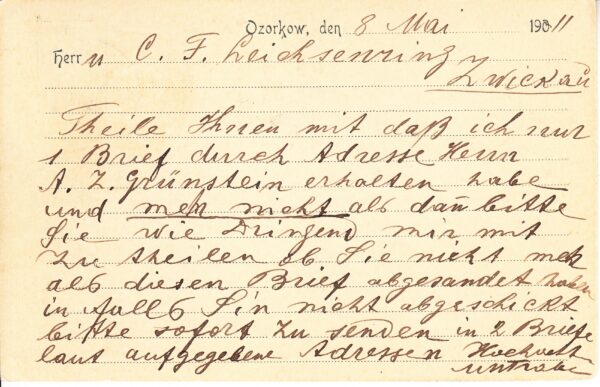 Ozorkow, den 8 Mai 190 11
Herrn C. F. Leichsenring
Zwickau
Theile Ihnen mit daß ich nur
1 Brief durch Adresse Herrn
A. Z. Grünstein erhalten habe
und meh nicht als dan̄ bitte
Sie wie Dringend mir mit
zu theilen ob Sie nicht meh
als diesen Brief abgesandt haben
in falls Sin nicht abgeschickt
bitte sofort zu senden in 2 Briefe
laut aufgegebene Adressen